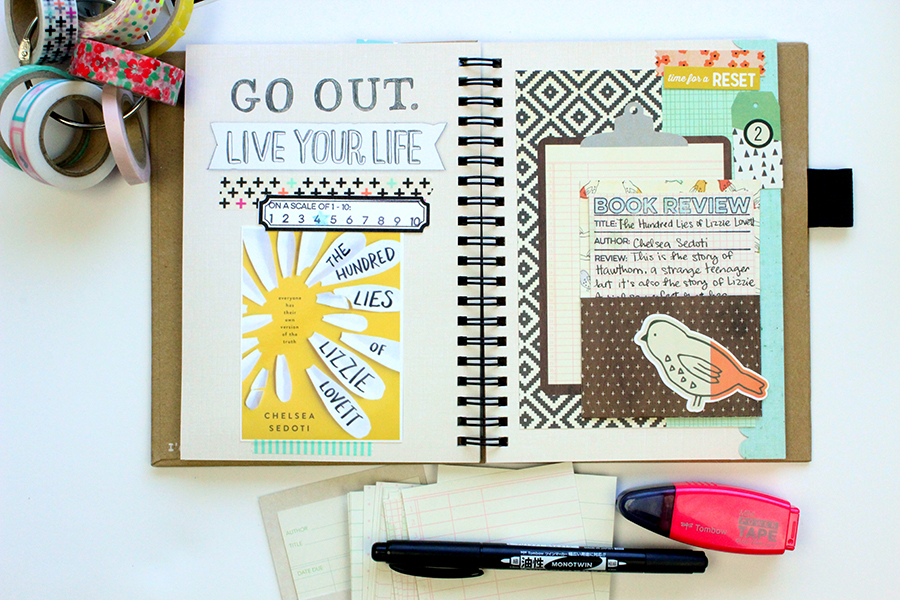 GO OUT.
LIVE YOUR LIFE
ON A SCALE OF 1 - 10:
1 2 3 4 5 6 7 8 9 10
everyone
has
their
own
version
of the
truth
THE
HUNDRED
LIES
OF
LIZZIE
LOVETT
CHELSEA
SEDOTI
time for a RESET
2
BOOK REVIEW
TITLE: The Hundred Lies of Lizzie Lovett
AUTHOR: Chelsea Sedoti
REVIEW: This is the story of
Hawthorn, a strange teenager
but it's also the story of Lizzie
AUTHOR
TITLE
DATE DUE
Tombow
TAPE
Tombow
油性 MONOTWIN